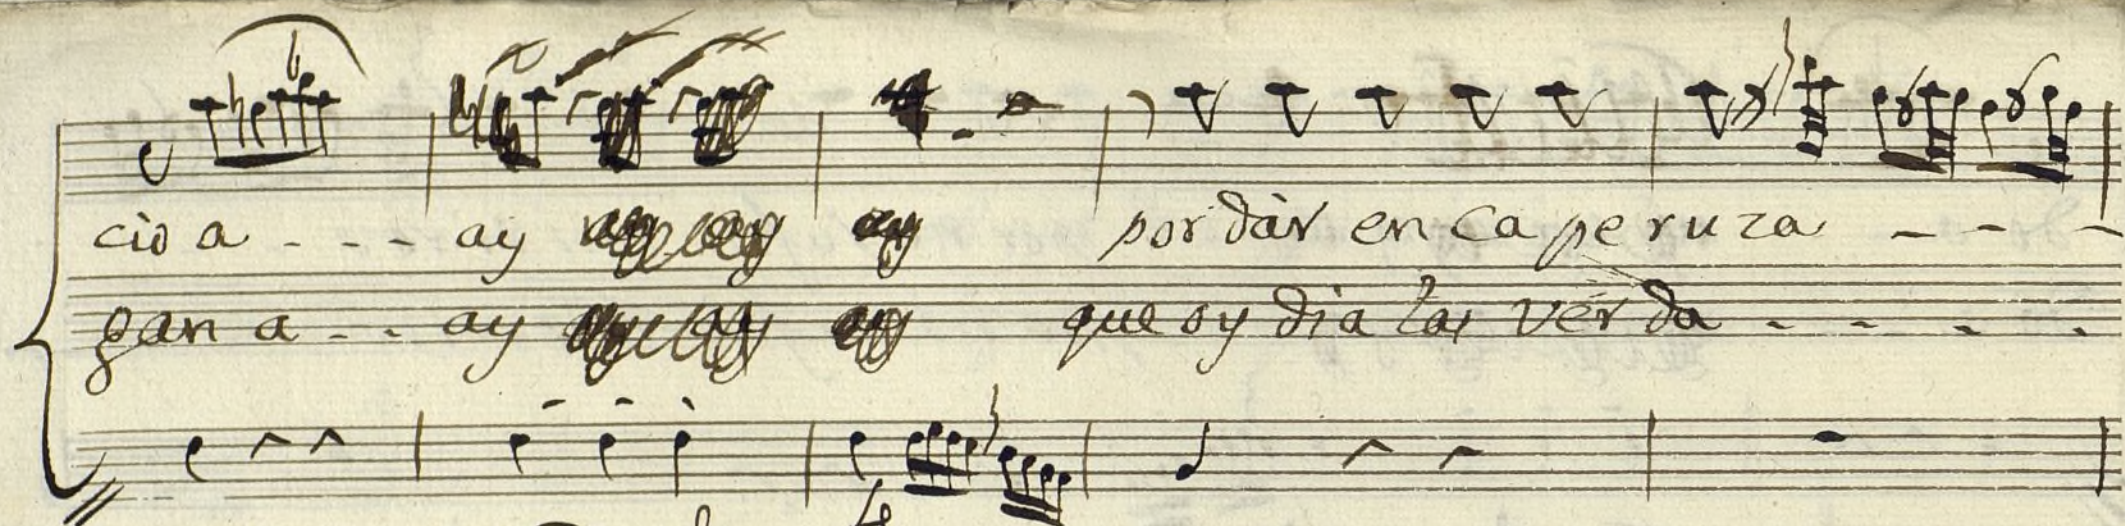 cio a - - - ay ay por dàr en Caperuza - - -
gan a - - ay que oy dia las verda - - - -